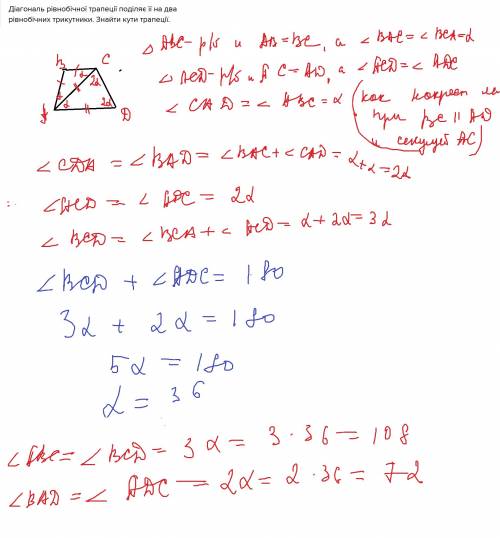 Діагональ рівнобічної трапеції поділяє її на два
рівнобічних трикутники. Знайти кути трапеції.
B C
A D
α 2α
α 2α
△ ABC - р/б и AB = BC, а ∠BAC = ∠BCA = α
△ ACD - р/б и AC = AD, а ∠ACD = ∠ADC
∠CAD = ∠ABC = α (как накрест ле
при BC || AD
и секущей AC)
∠CDA = ∠BAD = ∠BAC + ∠CAD = α + α = 2α
∠ACD = ∠ADC = 2α
∠BCD = ∠BCA + ∠ACD = α + 2α = 3α
∠BCD + ∠ADC = 180
3α + 2α = 180
5α = 180
α = 36
∠ABC = ∠BCD = 3α = 3 · 36 = 108
∠BAD = ∠ADC = 2α = 2 · 36 = 72